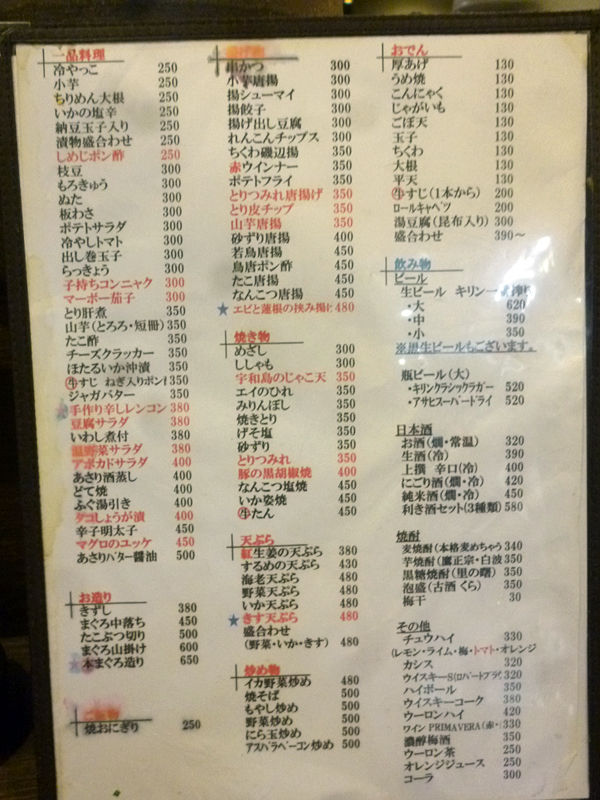 一品料理
冷やっこ 250
小芋 250
ちりめん大根 250
いかの塩辛 250
納豆玉子入り 250
漬物盛合わせ 250
しめじポン酢 250
枝豆 300
もろきゅう 300
ぬた 300
板わさ 300
ポテトサラダ 300
冷やしトマト 300
出し巻玉子 300
らっきょう 300
子持ちコンニャク 300
マーボー茄子 300
とり肝煮 350
山芋(とろろ・短冊) 350
たこ酢 350
チーズクラッカー 350
ほたるいか沖漬 350
牛すじ ねぎ入りポン 350
ジャガバター 350
手作り辛しレンコン 380
豆腐サラダ 380
いわし煮付 380
温野菜サラダ 380
アボカドサラダ 400
あさり酒蒸し 400
どて焼 400
ふぐ湯引き 400
タコしょうが漬 400
辛子明太子 450
マグロのユッケ 450
あさりバター醤油 500
お造り
きずし 380
まぐろ中落ち 450
たこぶつ切り 500
まぐろ山掛け 600
★本まぐろ造り 650
焼おにぎり 250
串かつ 300
小芋唐揚 300
揚シューマイ 300
揚餃子 300
揚げ出し豆腐 300
れんこんチップス 300
ちくわ磯辺揚 300
赤ウインナー 300
ポテトフライ 350
とりつみれ唐揚げ 350
とり皮チップ 350
山芋唐揚 350
砂ずり唐揚 400
若鳥唐揚 400
鳥唐ポン酢 450
たこ唐揚 450
なんこつ唐揚 450
★エビと蓮根の挟み揚げ 480
焼き物
めざし 300
ししゃも 300
宇和島のじゃこ天 350
エイのひれ 350
みりんぼし 350
焼きとり 350
げそ塩 350
砂ずり 350
とりつみれ 350
豚の黒胡椒焼 400
なんこつ塩焼 450
いか姿焼 450
牛たん 450
天ぷら
紅生姜の天ぷら 380
するめの天ぷら 430
海老天ぷら 480
野菜天ぷら 480
いか天ぷら 480
★きす天ぷら 480
盛合わせ
(野菜・いか・きす) 480
炒め物
イカ野菜炒め 480
焼そば 500
もやし炒め 500
野菜炒め 500
にら玉炒め 500
アスパラベーコン炒め 500
おでん
厚あげ 130
うめ焼 130
こんにゃく 130
じゃがいも 130
ごぼ天 130
玉子 130
ちくわ 130
大根 130
平天 130
牛すじ(1本から) 200
ロールキャベツ 200
湯豆腐(昆布入り) 300
盛合わせ 390～
飲み物
ビール
生ビール キリン一番搾り
・大 620
・中 390
・小 350
※黒生ビールもございます。
瓶ビール(大)
・キリンクラシックラガー 520
・アサヒスーパードライ 520
日本酒
お酒(燗・常温) 320
生酒(冷) 390
上撰 辛口(冷) 400
にごり酒(燗・冷) 420
純米酒(燗・冷) 450
利き酒セット(3種類) 580
焼酎
麦焼酎(本格麦めちゃう 340
芋焼酎(薩正宗・白波 350
黒糖焼酎(里の曙) 350
泡盛(古酒 くら) 350
梅干 30
その他
チュウハイ 330
(レモン・ライム・梅・トマト・オレンジ
カシス 320
ウイスキーS(ロバートブラウ 320
ハイボール 350
ウイスキーコーク 380
ウーロンハイ 420
ワイン PRIMAVERA(赤・ 330
濃醇梅酒 350
ウーロン茶 250
オレンジジュース 250
コーラ 300